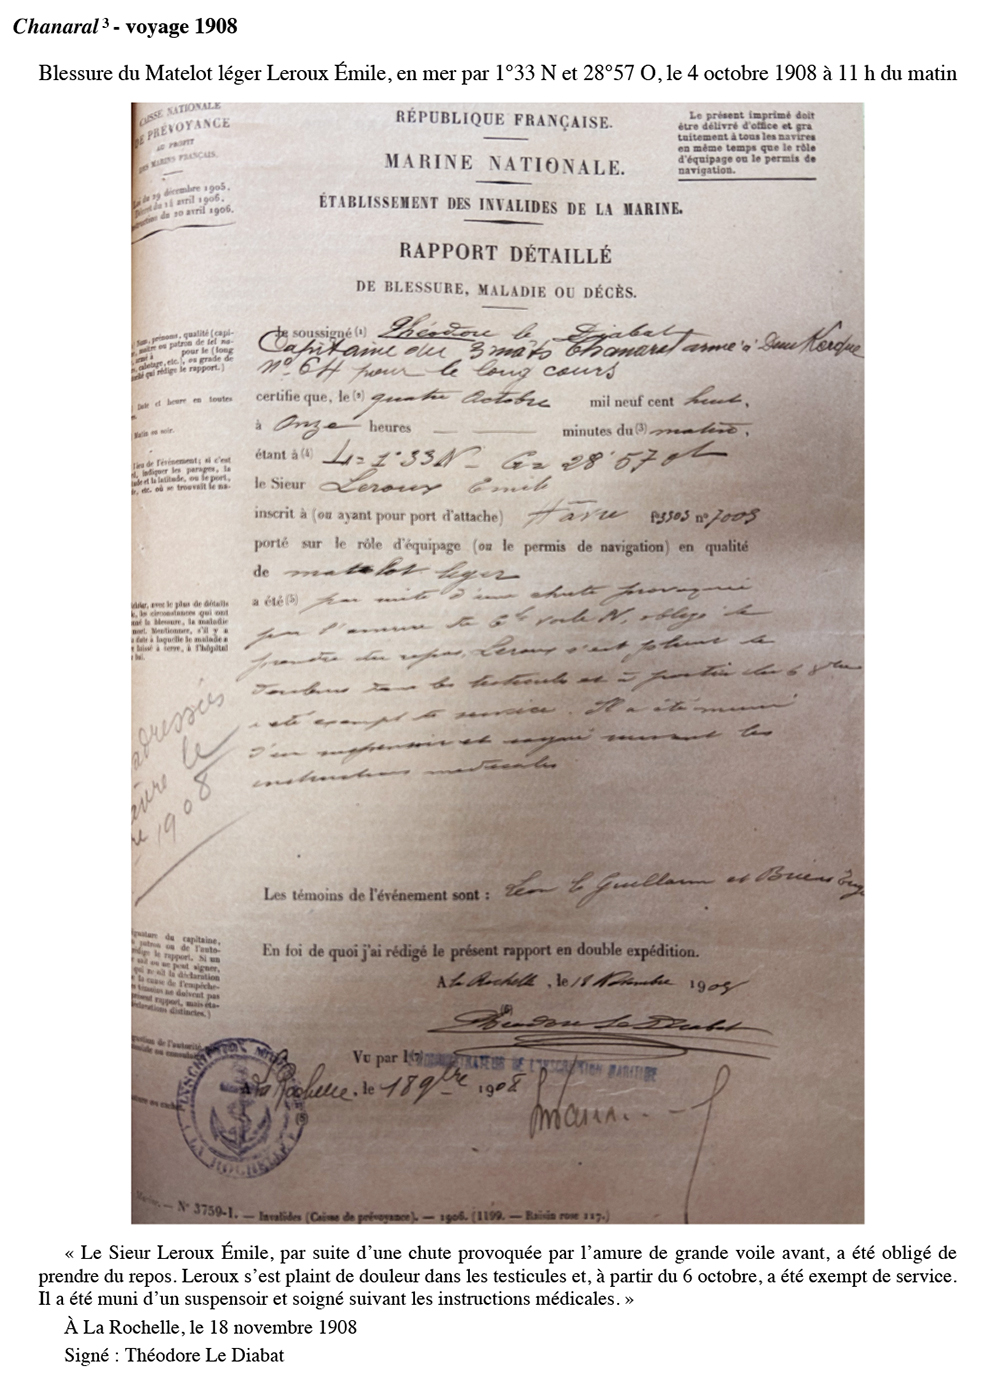 Chanaral ³ - voyage 1908
Blessure du Matelot léger Leroux Émile, en mer par 1°33 N et 28°57 O, le 4 octobre 1908 à 11 h du matin
CAISSE NATIONALE
DE PRÉVOYANCE
AU PROFIT
DES MARINS FRANÇAIS.
Loi du 29 décembre 1905.
Décret du 14 avril 1906.
Instruction du 20 avril 1906.
RÉPUBLIQUE FRANÇAISE.
MARINE NATIONALE.
ÉTABLISSEMENT DES INVALIDES DE LA MARINE.
RAPPORT DÉTAILLÉ
DE BLESSURE, MALADIE OU DÉCÈS.
Le présent imprimé doit
être délivré d'office et gra
tuitement à tous les navires
en même temps que le rôle
d'équipage ou le permis de
navigation.
Nom, prénoms, qualité (capi-
maître ou patron de tel na-
armé à pour le (long
cabotage, etc.), ou grade de
qui rédige le rapport.)
Je soussigné (1) Théodore le Diabat
Capitaine du 3 mâts Chanaral armé à Dunkerque
N° 64 pour le long cours
Date et heure en toutes
certifie que, le (2) quatre Octobre mil neuf cent huit,
Matin ou soir.
à Onze heures — — minutes du (3) matin,
Lieu de l'événement; si c'est
indiquer les parages, la
et la latitude, ou le port,
etc. où se trouvait le na-
étant à (4) L = 1°33 N - G = 28°57 ot
le Sieur Leroux Emile
inscrit à (ou ayant pour port d'attache) Hâvre n° 7003
porté sur le rôle d'équipage (ou le permis de navigation) en qualité
de matelot léger
avec le plus de détails
les circonstances qui ont
la blessure, la maladie
Mentionner, s'il y a
date à laquelle le malade a
laissé à terre, à l'hôpital
a été (5) par suite d'une chute provoquée
par l'amure de Gde voile N, obligé de
prendre du repos. Leroux s'est plaint de
douleurs dans les testicules et à partir du 6 8bre
a été exempt de service. Il a été muni
d'un suspensoir et soigné suivant les
instructions médicales
adressées
le
1908
Les témoins de l'événement sont : Léon le Guillerm et
En foi de quoi j'ai rédigé le présent rapport en double expédition.
Signature du capitaine,
patron ou de l'auto-
rédige le rapport. Si un
ne peut signer,
la déclaration
la cause de l'empêche-
témoins ne doivent pas
rapport, mais
distinctes.)
A La Rochelle, le 18 Novembre 1908
(6)
Théodore Le Diabat
Vu par l' ADMINISTRATEUR DE L'INSCRIPTION MARITIME
La Rochelle, le 18 9bre 1908
INSCRIPTION
LA ROCHELLE
N° 3759-1. — Invalides (Caisse de prévoyance). — 1906. (1199. — Raisin rose 117.)
« Le Sieur Leroux Émile, par suite d'une chute provoquée par l'amure de grande voile avant, a été obligé de
prendre du repos. Leroux s'est plaint de douleur dans les testicules et, à partir du 6 octobre, a été exempt de service.
Il a été muni d'un suspensoir et soigné suivant les instructions médicales. »
À La Rochelle, le 18 novembre 1908
Signé : Théodore Le Diabat